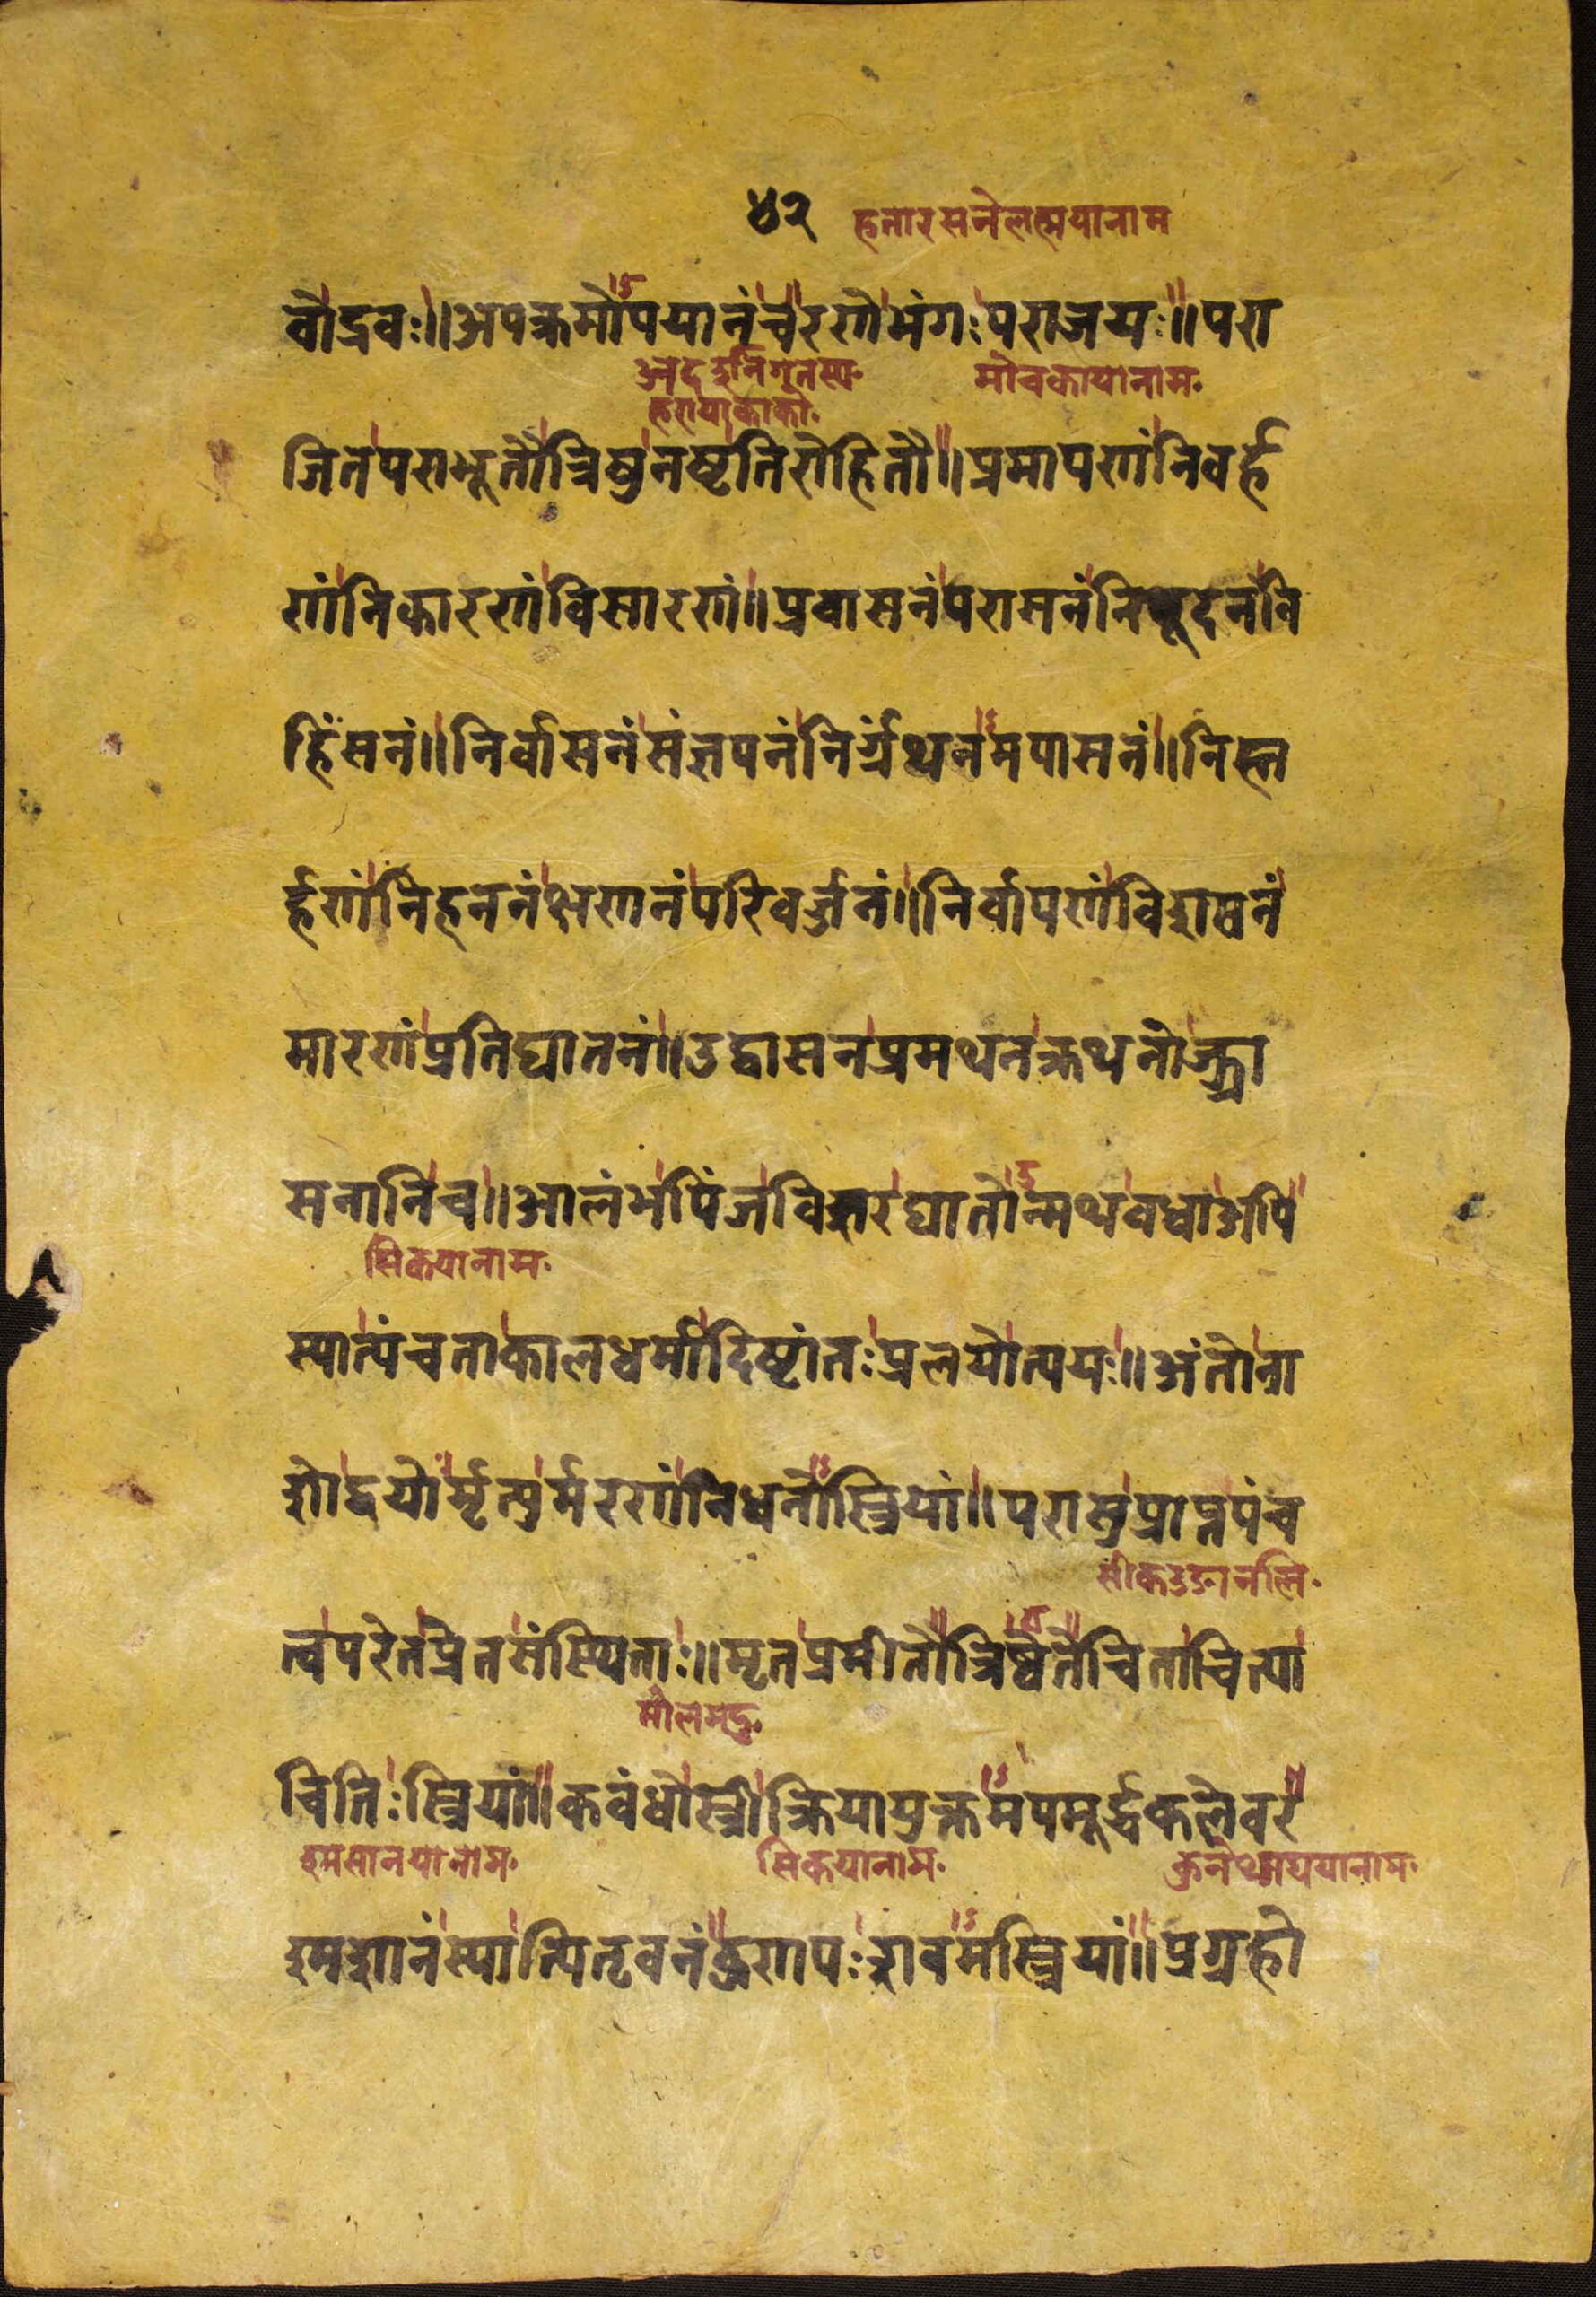 ४२ हतारसनेलह्मयानाम
वोद्रवः॥अपक्रमोपयानंचरणेभंगःपराजयः॥परा
मोचकायानाम॰
जितपराभूतौत्रिषुनष्टतिरोहितौ॥प्रमापणंनिवर्ह
णंनिकारणंविसारणं॥प्रवासनंपरासनंनिषूदनंवि
हिंसनं॥निर्वासनंसंज्ञपनंनिर्ग्रंथनमपासनं॥निस्त
र्हणंनिहननंक्षणनंपरिवर्जनं॥निर्वापणंविशसनं
मारणंप्रतिघातनं॥उद्वासनप्रमथनक्रथनोज्जा
सनानिच॥आलंभपिंजविशरघातोन्मथवधाअपि
सिकयानाम॰
स्यात्पंचताकालधर्मादिष्टांतःप्रलयोत्ययः॥अंतोना
शोद्वयोर्मृत्युर्मरणंनिधनोस्त्रियां॥परासुप्राप्तपंच
त्वपरेतप्रेतसंस्थिताः॥मृतप्रमीतौत्रिष्वेतेचिताचित्या
चितिःस्त्रियां॥कवंधोस्त्रीक्रियायुक्तमपमूर्द्धकलेवरं
श्मसानयानाम॰ सिकयानाम॰
श्मशानंस्यात्पितृवनंकुणपःशवमस्त्रियां॥प्रग्रहो